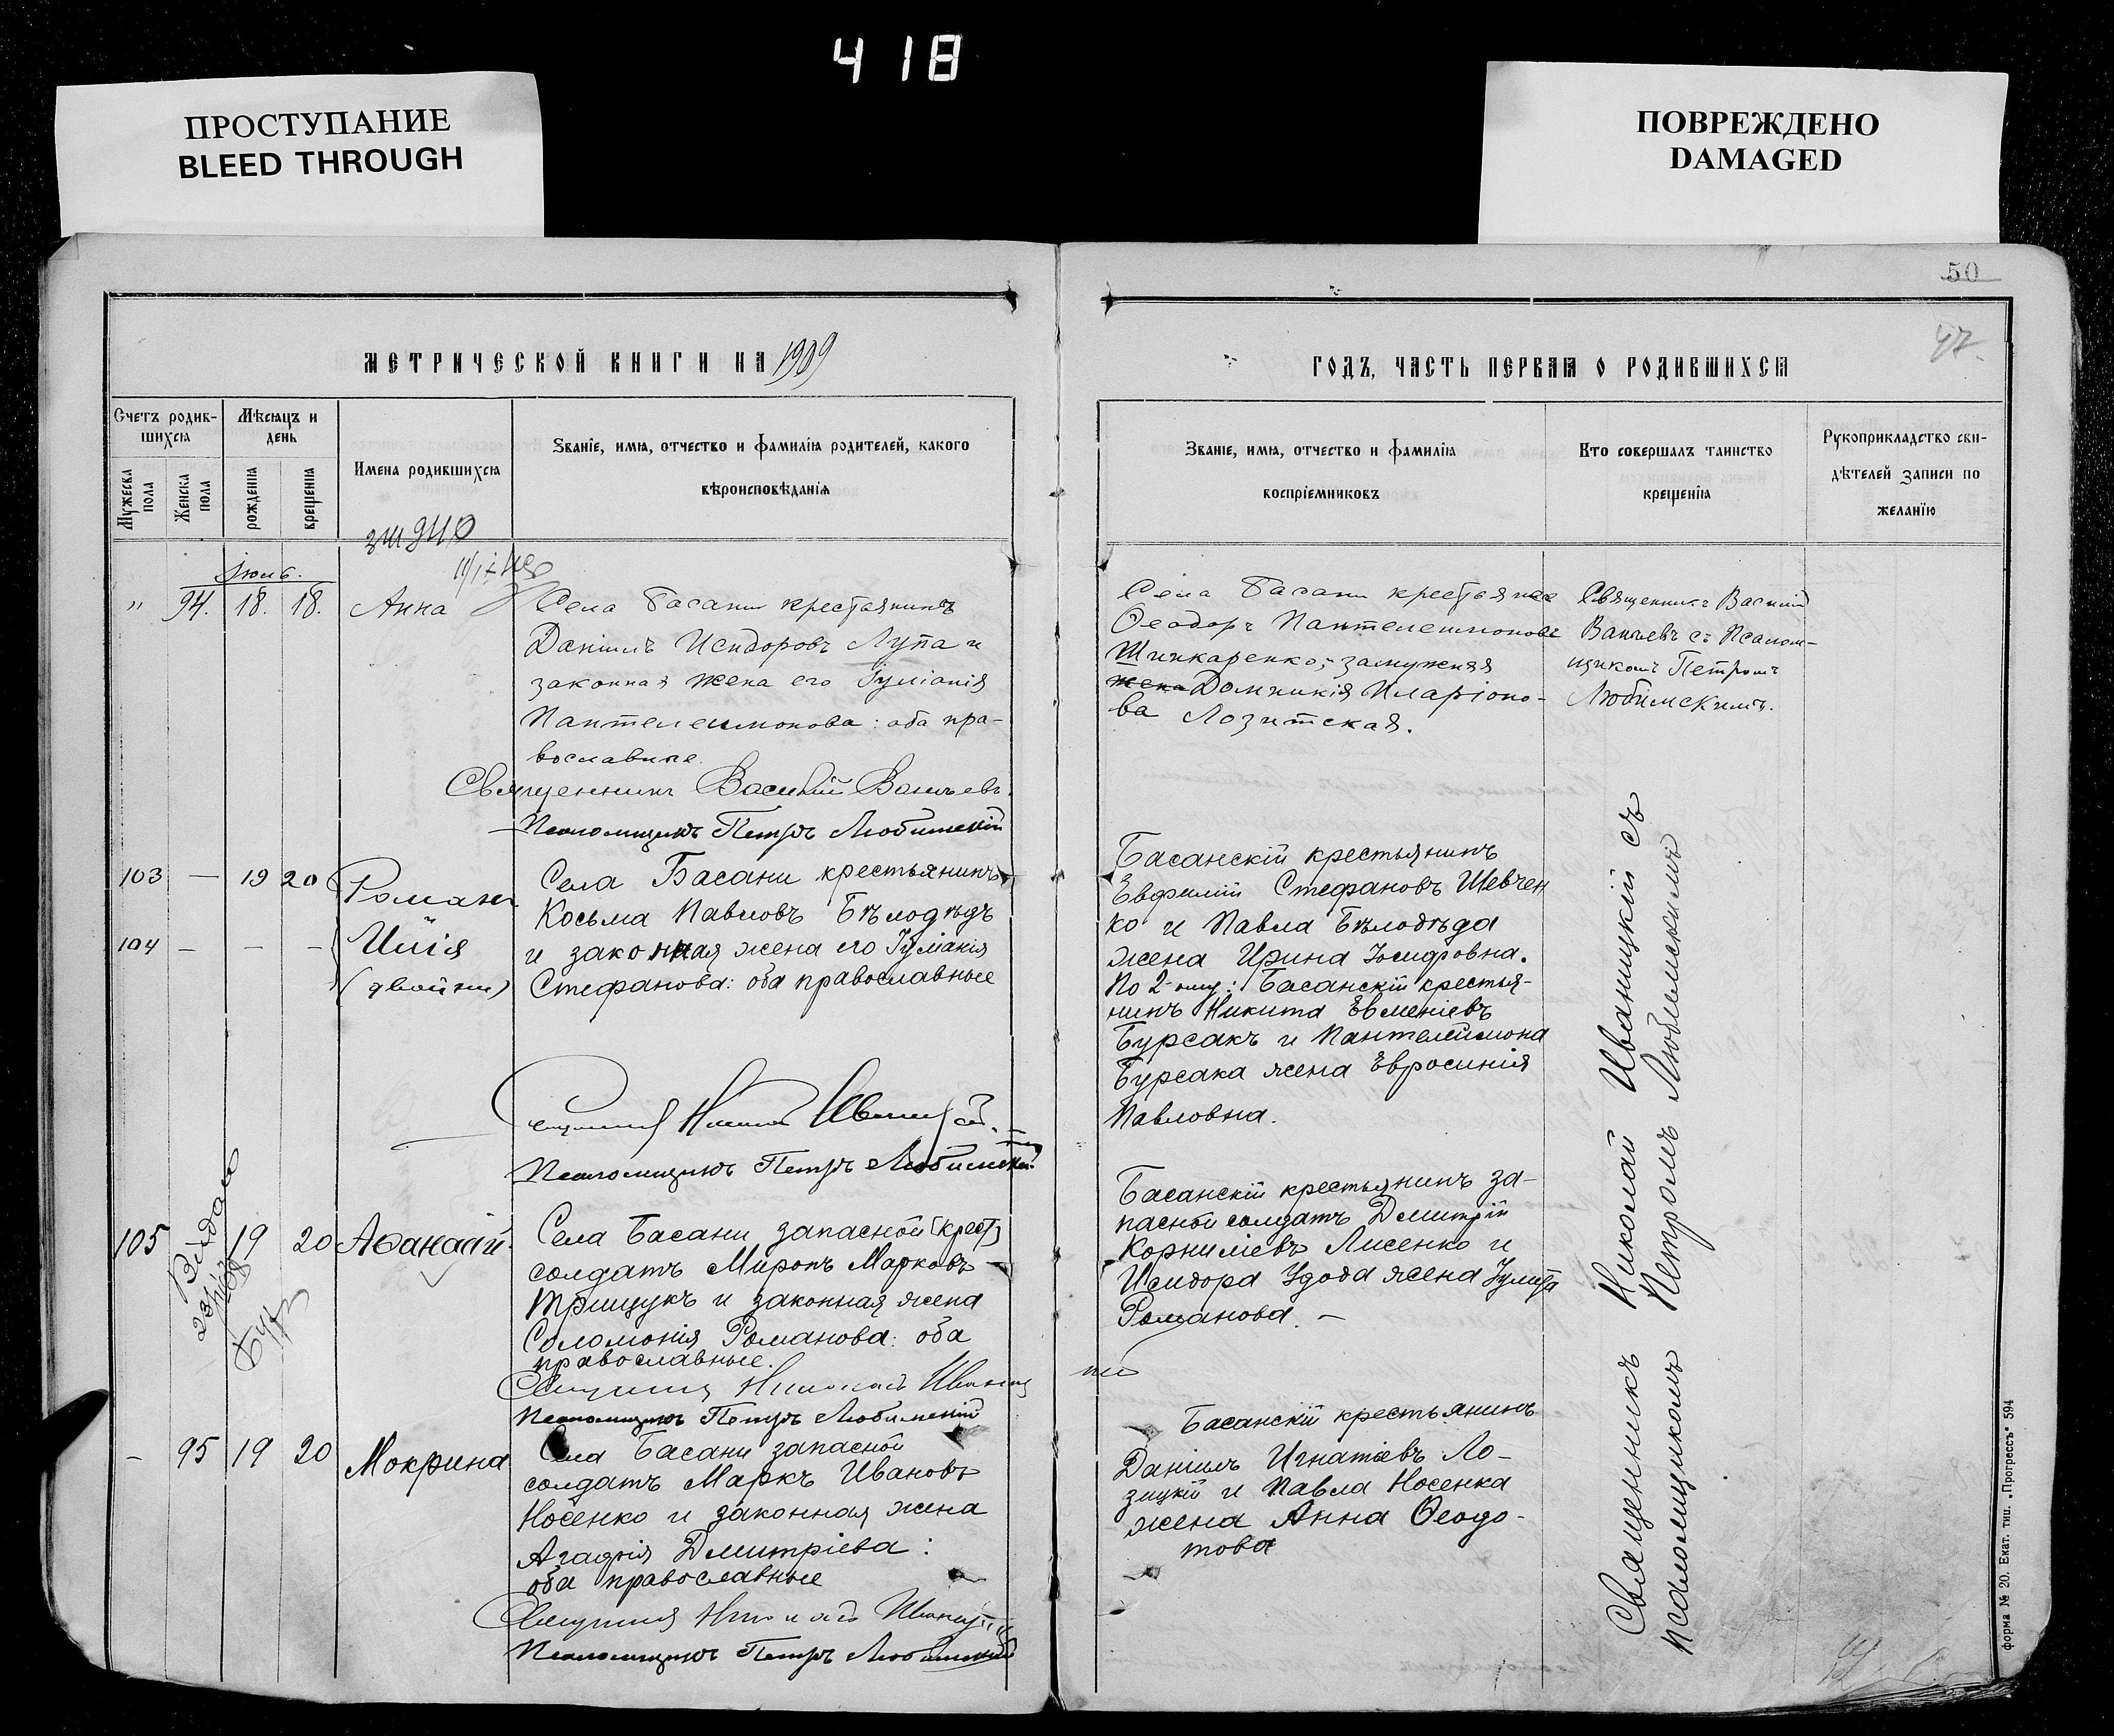 418
ПРОСТУПАНИЕ
BLEED THROUGH
ПОВРЕЖДЕНО
DAMAGED
50
47
МЕТРИЧЕСКОЙ КНИГИ НА 1909
Счетъ родив-
шихся
Мѣсяцъ и
день
Мужеска
пола
Женска
пола
рожденія
крещенія
Имена родившихся
Званіе, имя, отчество и фамилія родителей, какого
вѣроисповѣданія
Іюль.
" 94. 18. 18. Анна
Села Басани крестьянинъ
Даніилъ Исидоровъ Лупа и
законная жена его Іуліанія
Пантелеимонова: оба пра-
вославные.
Священникъ Василій
Псаломщикъ Петръ Любимскій
103 — 19 20 Романъ
104 — — — Илія
(двойни)
Села Басани крестьянинъ
Косьма Павловъ Бѣлодѣдъ
и законная жена его Іуліанія
Стефанова: оба православные
Николай
Псаломщикъ Петръ Любимскій
105 19 20 Аѳанасій
Села Басани запасной [крест]
солдатъ Миронъ Марковъ
Грищукъ и законная жена
Соломонія Романова: оба
православные.
Николай
Псаломщикъ Петръ Любимскій
— 95 19 20 Мокрина
Села Басани запасной
солдатъ Маркъ Ивановъ
Носенко и законная жена
Агафія Дмитріева:
оба православные
Николай
Псаломщикъ Петръ Любимскій
ГОДЪ, ЧАСТЬ ПЕРВАЯ О РОДИВШИХСЯ
Званіе, имя, отчество и фамилія
воспріемниковъ
Кто совершалъ таинство
крещенія
Рукоприкладство сви-
дѣтелей записи по
желанію
Села Басани крестьяне
Ѳеодоръ Пантелеимоновъ
Шинкаренко; замужняя
жена Домникія Иларіоно-
ва Лозитская.
Священникъ Василій
съ Псалом-
щикомъ Петромъ
Любимскимъ.
Басанскій крестьянинъ
Евфимій Стефановъ Шевчен
ко и Павла Бѣлодѣда
жена Ирина Іосифовна.
По 2-ому: Басанскій крестья-
нинъ Никита Евменіевъ
Бурсакъ и Пантелеймона
Бурсака жена Евросинія
Павловна.
Басанскій крестьянинъ за-
пасной солдатъ Дмитрій
Корниліевъ Лисенко и
Исидора Удода жена Іулита
Романова. —
Басанскій крестьянинъ
Даніилъ Игнатіевъ Ло-
зицкій и Павла Носенка
жена Анна Ѳеодо-
това
Священникъ Николай Иваницкій съ
псаломщикомъ Петромъ Любимскимъ
форма № 20. Екат. тип. „Прогрессъ“ 594